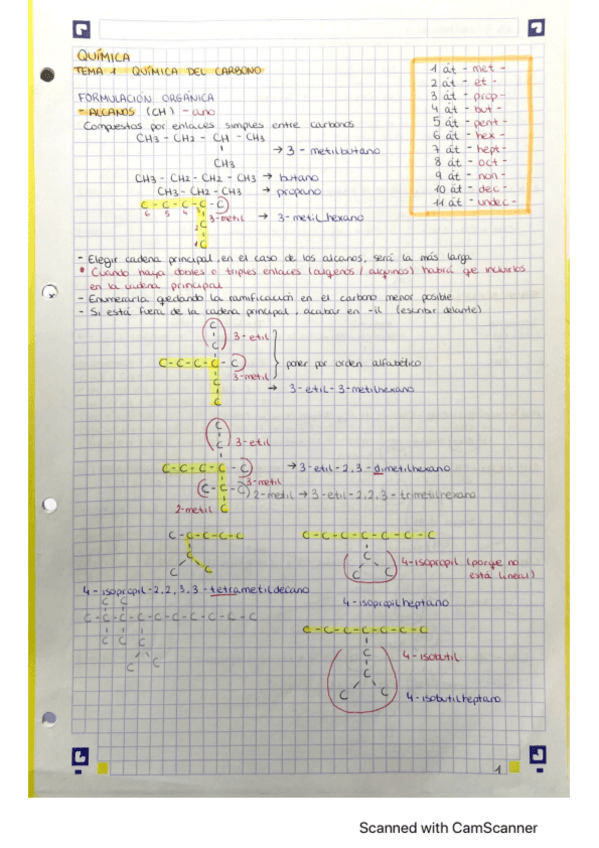 QUÍMICA
TEMA 1 QUÍMICA DEL CARBONO
FORMULACIÓN ORGÁNICA
- ALCANOS (CH) - ano
Compuestos por enlaces simples entre carbonos
CH3 - CH2 - CH - CH3
CH3
→ 3 - metilbutano
CH3 - CH2 - CH2 - CH3 → butano
CH3 - CH2 - CH3 → propano
C - C - C - C - C
6 5 4 3
3-metil → 3-metilhexano
2 C
1 C
1 át - met -
2 át - et -
3 át - prop -
4 át - but -
5 át - pent -
6 át - hex -
7 át - hept -
8 át - oct -
9 át - non -
10 át - dec -
11 át - undec -
- Elegir cadena principal, en el caso de los alcanos, será la más larga
* Cuando haya dobles o triples enlaces (alquenos / alquinos) habrá que incluirlos
en la cadena principal
- Enumerarla quedando la ramificación en el carbono menor posible
- Si está fuera de la cadena principal, acabar en -il (escribir delante)
C
C
3-etil
C - C - C - C - C
3-metil
C
C
poner por orden alfabético
→ 3-etil-3-metilhexano
C
C
3-etil
C - C - C - C - C
→ 3-etil-2,3-dimetilhexano
3-metil
C - C - C
2-metil → 3-etil-2,2,3-trimetilhexano
2-metil C
C - C - C - C - C
C
C C
C - C - C - C - C - C - C
C
C C
4-isopropil (porque no
está lineal)
4-isopropilheptano
4-isopropil-2,2,3,3-tetrametildecano
C C
C - C - C - C - C - C - C - C - C - C
C C C
C C
C - C - C - C - C - C - C
C
C
C C
4-isobutil
4-isobutilheptano
1
Scanned with CamScanner